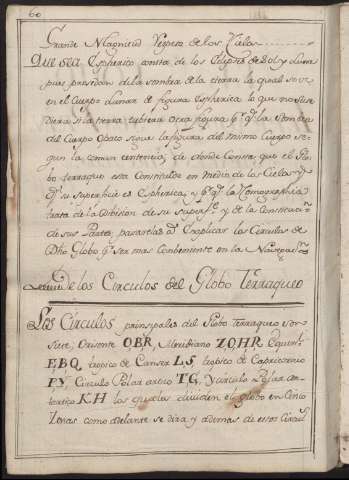 60
Grande Magnitud respecto de los Cielos
Que sea Espherico consta de los Eclypses de Sol y Luna
pues proceden de la sombra de la tierra la qual se ve
en el Cuerpo Lunar de figura Espherica lo que no suce
diera si la tierra tubiera otra figura pq. la Sombra
del Cuerpo Opaco sigue la figura del mismo Cuerpo se-
gun la comun sentencia, de donde Consta que el Glo-
bo terraqueo esta Constituido en medio de los Cielos y
q. su superficie es Espherica y pq. la
trata de la Division de su superfe. y de la Constitucion
de sus Partes, pasaremos a explicar los Circulos de
Dho Globo pr. ser mas Conbeniente en la
De los Circulos del Globo Terraqueo
Los Circulos principales del Globo Terraqueo son
siete Orizonte OBR, Meridiano ZOHR, Equinl.
EBQ tropico de Cancer LS, tropico de Capricornio
PY, Circulo Polar artico TG, y circulo Polar an-
tartico KH los quales dividen el globo en Cinco
Zonas como adelante se dira y ademas de estos Circul